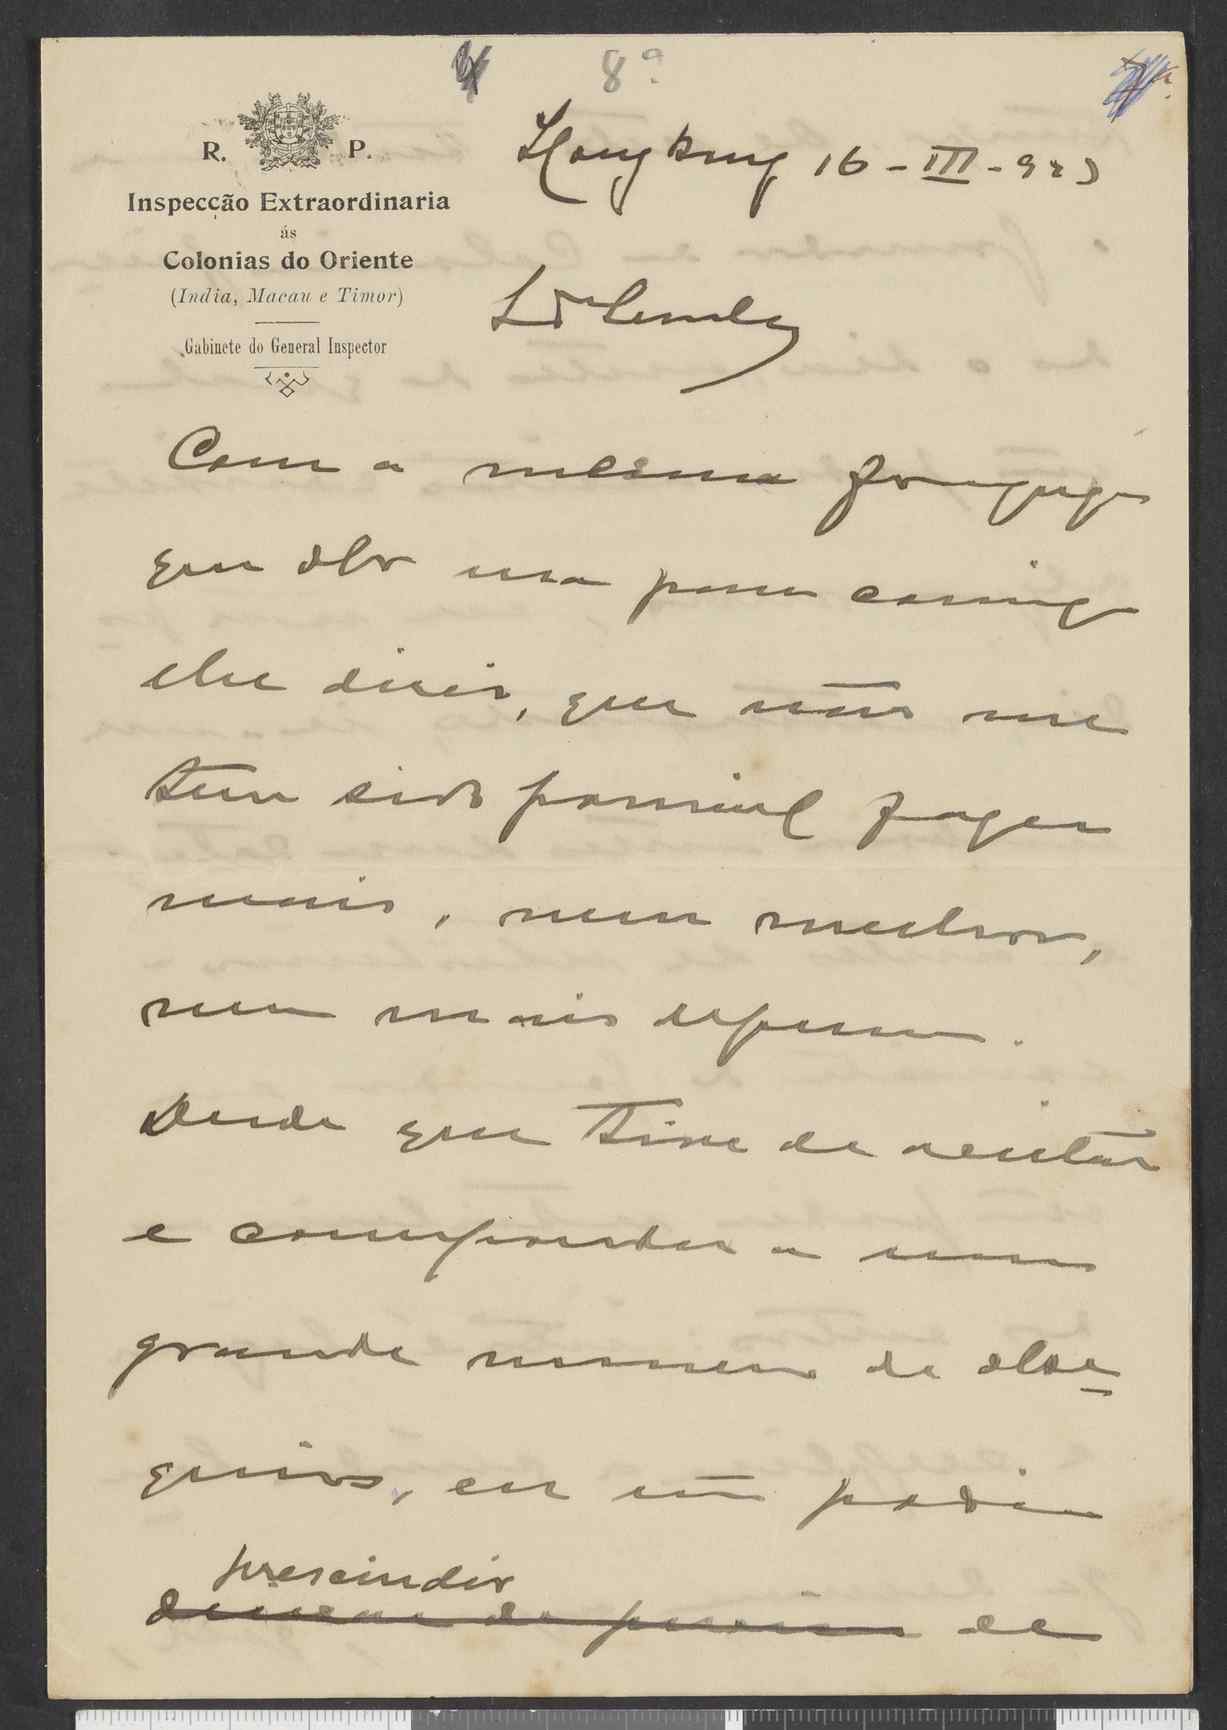 8ª
R. P.
Hong Kong 16 - III - 923
Inspecção Extraordinaria
ás
Colonias do Oriente
(India, Macau e Timor)
Gabinete do General Inspector
Com a mesma franqueza
que usa para comigo
lhe direi, que não me
tem sido possivel fazer
mais, nem melhor,
nem mais depressa.
Desde que tive de aceitar
e corresponder a um
grande numero de obse-
quios, eu não podia
prescindir
deixar de de